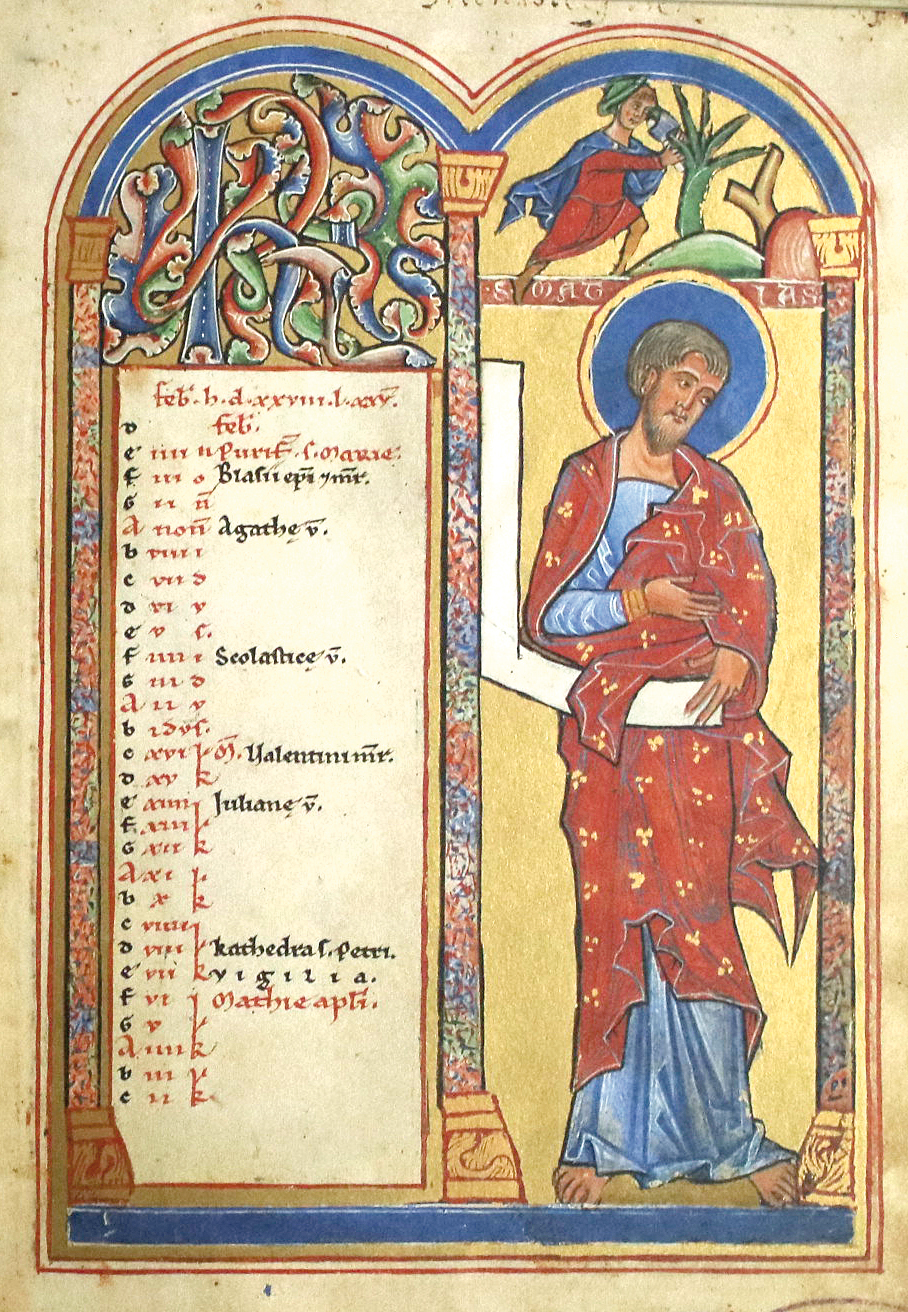 KL
·S· MATTIAS
feb̄·h·d·xxviii·l·xxx̄·
D feb̄.
e iiii n Purif̄·S·Marie·
f iii o Blasii ep̄i ⁊ m̄r.
G ii n̄
A noñ Agathę v̄.
b viii i
c vii d
D vi v
e v s.
f iiii i Scolasticę v̄.
G iii d
A ii v
b idvs.
c xvi k M̄. Valentini m̄r.
D xv k
e xiiii k Julianę v̄.
f xiii k
G xii k
A xi k
b x k
c viiii k
D viii k kathedra S. Petri.
e vii k vigilia.
f vi k Mathie apl̄i.
G v k
A iiii k
b iii k
c ii k